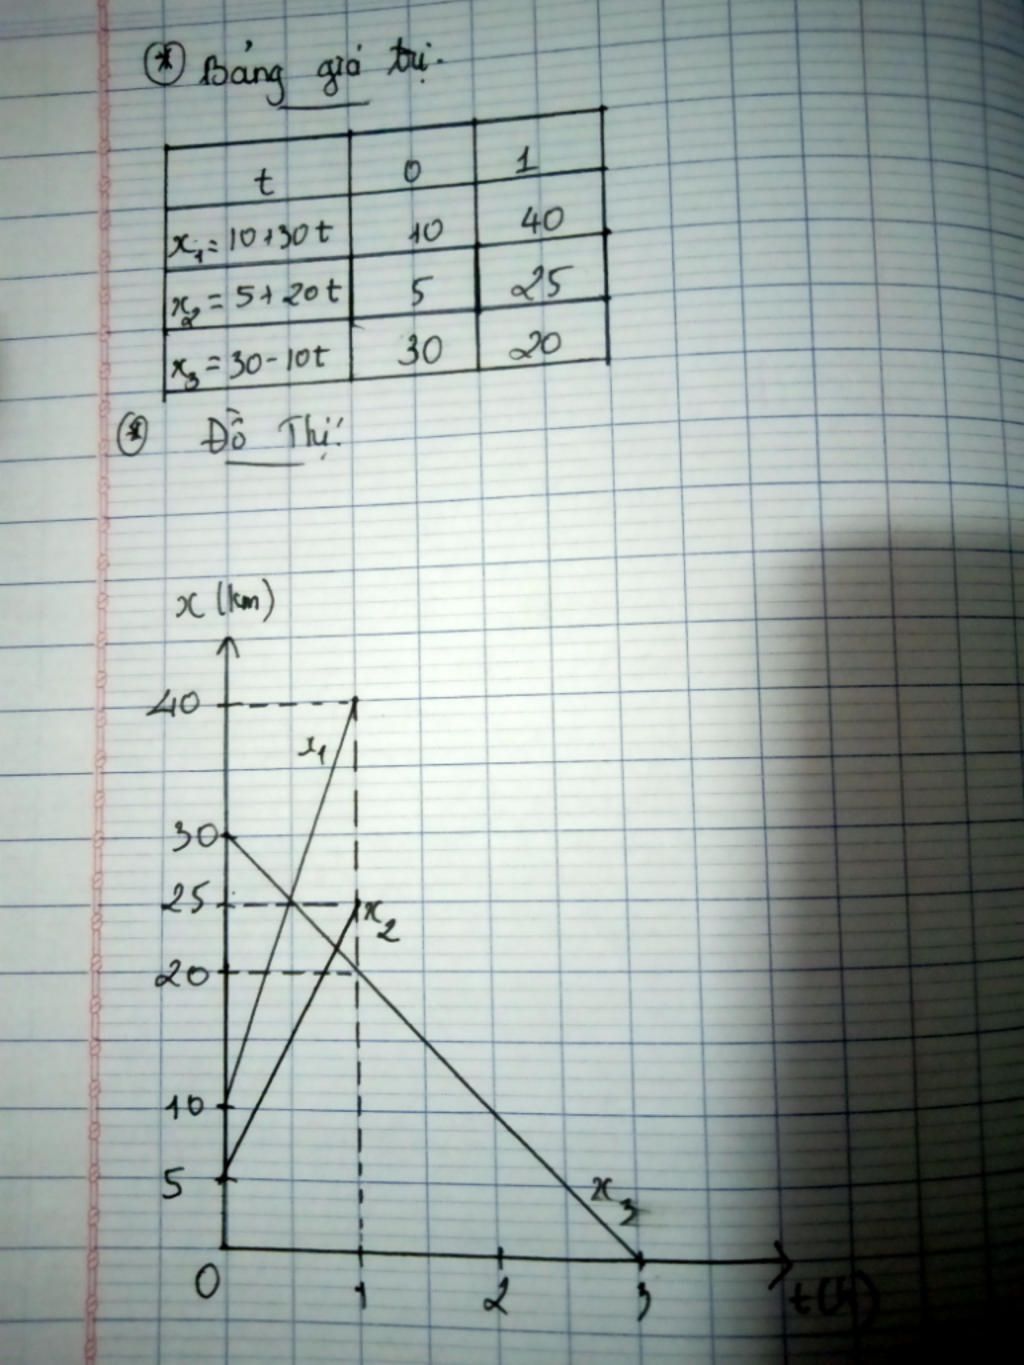 * Bảng giá trị.
t 0 1
x₁ = 10+30t 10 40
x₂ = 5+20t 5 25
x₃ = 30-10t 30 20
* Đồ Thị:
x (km)
40
x₁
30
25
x₂
20
10
5
x₃
0 1 2 3 t(h)